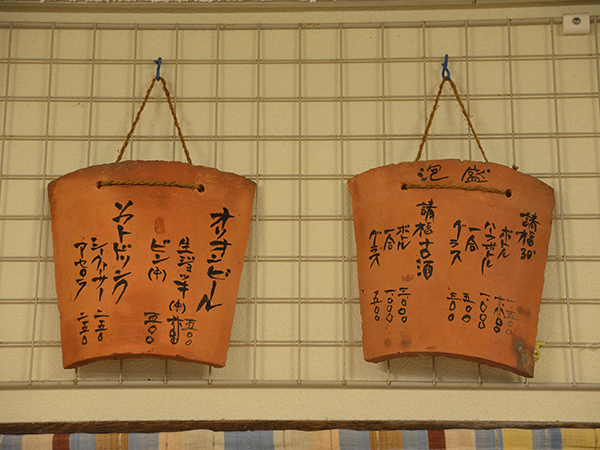 オリオンビール
生ジョッキ(中)
ビン(中) 五〇〇
ソフトドリンク
シークヮーサー 二五〇
アセロラ 二五〇
泡盛
請福30°
ボトル
ハーフボトル 一〇〇〇
一合 五〇〇
グラス 三〇〇
請福古酒
ボトル 三〇〇〇
一合 一〇〇〇
グラス 五〇〇